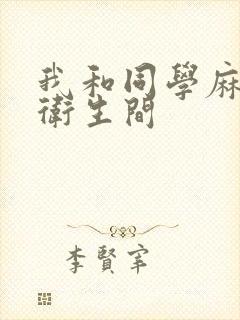 我和同學麻
衛生間
李賢宰